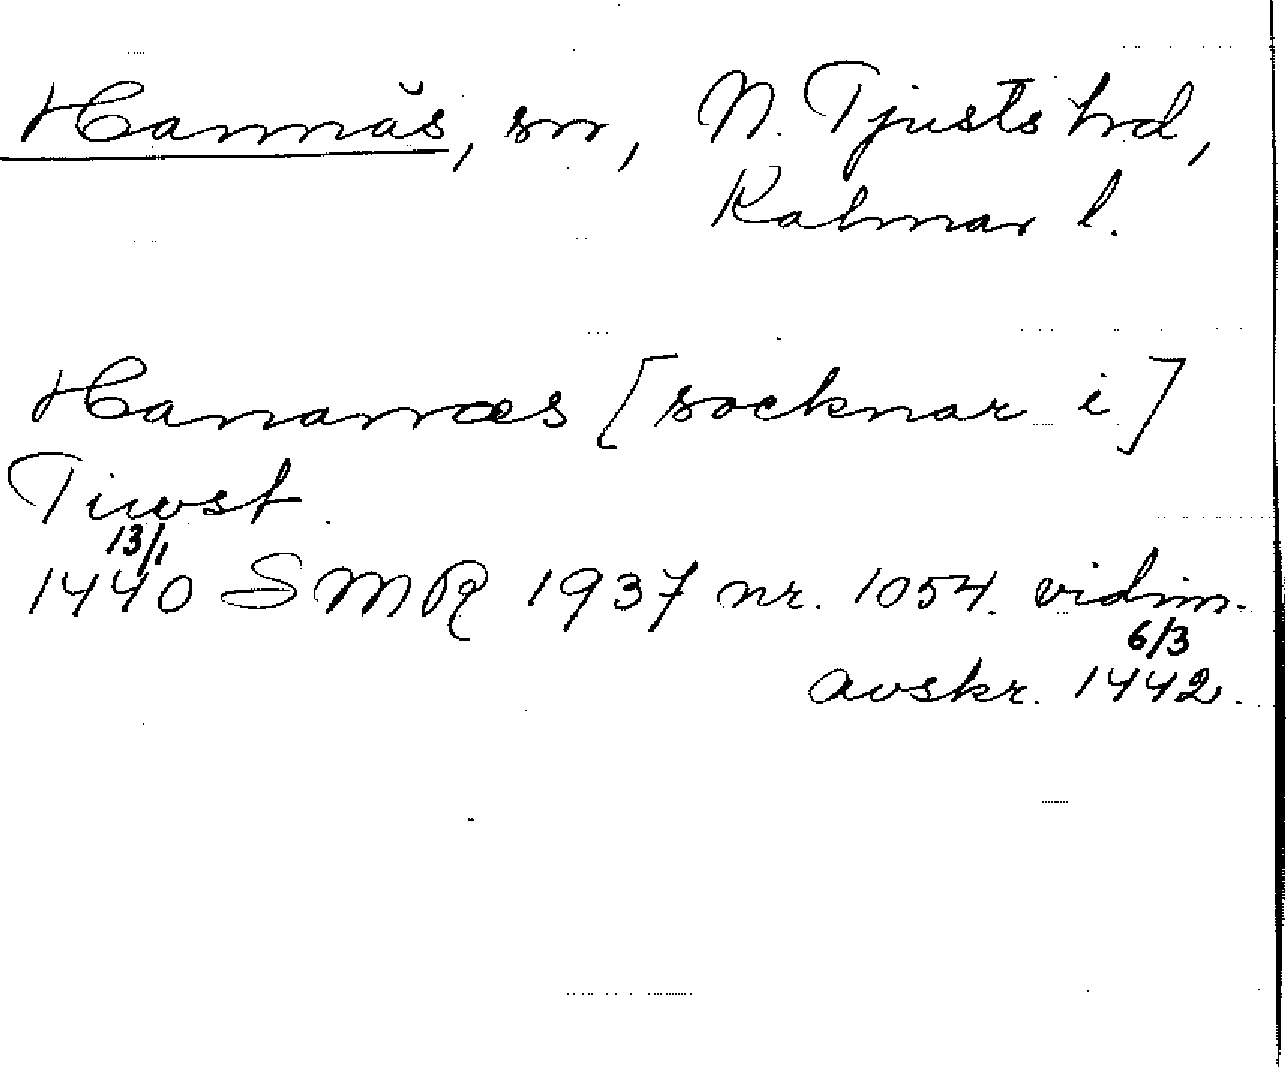 Hannäs, sn, N. Tjusts hd,
Kalmar l.
Hananæs [socknar i]
Tiwst
13/1
1440 SMR 1937 nr. 1054. vidim.
6/3
avskr. 1442.